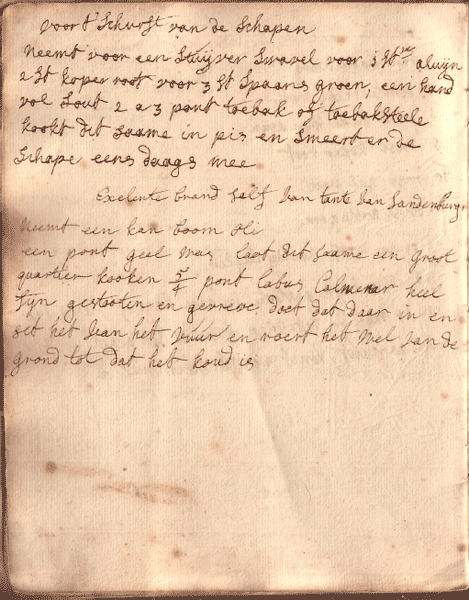 voor t Schurft van de Schapen
Neemt voor een Stuijver Swavel voor 1 st aluijn
2 st koper root voor 3 st Spaans groen, een hand
vol Sout 2 a 3 pont toebak of toebaksteele
kookt dit saame in pis en Smeert er de
Schape eens daags mee
Exelente brand salf van tante van Sandenburg
Neemt een kan boom oli
een pont geel was laat dit saame een groot
quartier kooken 3/4 pont Labus Calmenar heel
fijn gestooten en gevreve doet dat daar in en
set het van het vuur en roert het wel van de
grond tot dat het koud is